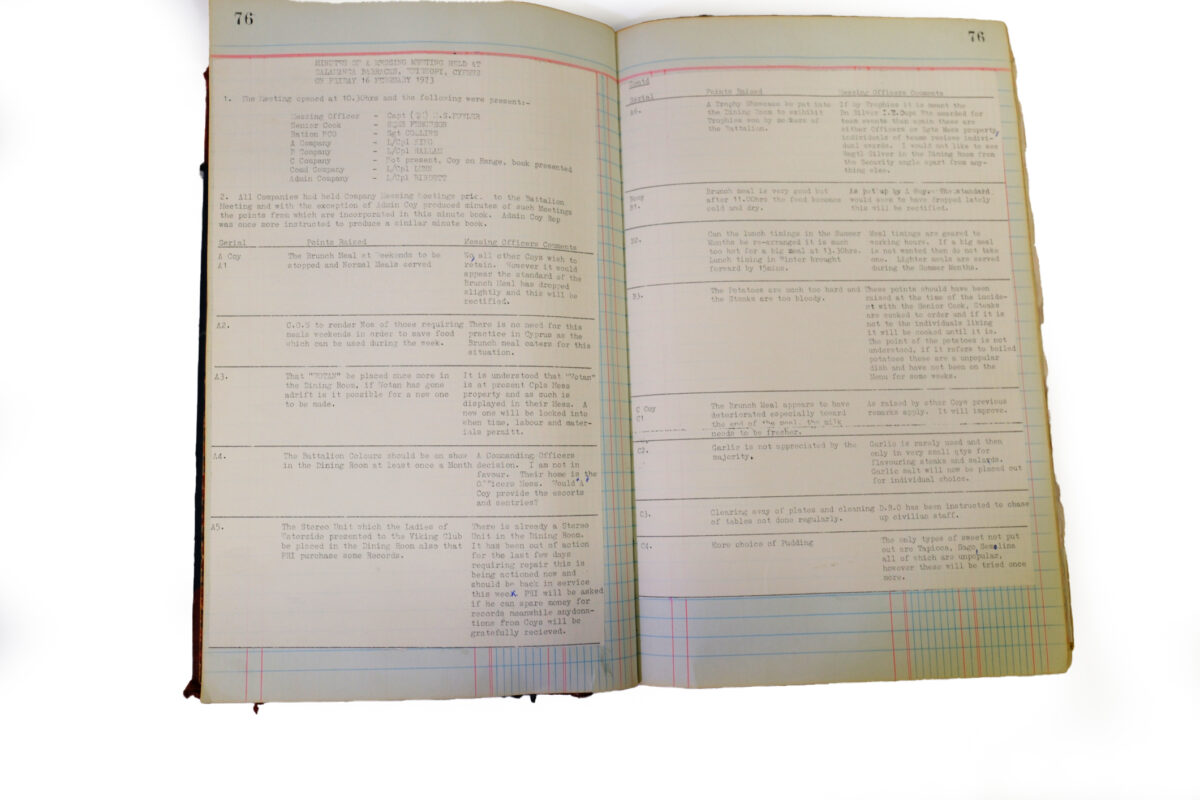 76
MINUTES OF A MESSING MEETING HELD AT
SALAMANCA BARRACKS, EPISKOPI, CYPRUS
ON FRIDAY 16 FEBRUARY 1973
1. The Meeting opened at 10.30hrs and the following were present:-
Messing Officer - Capt
Senior Cook - FERGUSON
Ration NCO - Sgt COLLINS
A Company - L/Cpl
B Company - L/Cpl HALLAM
C Company - Not present, Coy on Range, book presented
Comd Company - L/Cpl
Admin Company - L/Cpl
2. All Companies had held Company Messing Meetings prior to the Battalion
Meeting and with the exception of Admin Coy produced minutes of such Meetings
the points from which are incorporated in this minute book. Admin Coy Rep
was once more instructed to produce a similar minute book.
Serial Points Raised Messing Officers Comments
A Coy The Brunch Meal at Weekends to be No all other Coys wish to
A1 stopped and Normal Meals served retain. However it would
appear the standard of the
Brunch Meal has dropped
slightly and this will be
rectified.
A2. C.O.S to render Nos of those requiring There is no need for this
meals weekends in order to save food practice in Cyprus as the
which can be used during the week. Brunch meal caters for this
situation.
A3. That "WOTAN" be placed once more in It is understood that "Wotan"
the Dining Room, if Wotan has gone is at present Cpls Mess
adrift is it possible for a new one property and as such is
to be made. displayed in their Mess. A
new one will be looked into
when time, labour and mater-
ials permitt.
A4. The Battalion Colours should be on show A Commanding Officers
in the Dining Room at least once a Month decision. I am not in
favour. Their home is the
Officers Mess. Would A
Coy provide the escorts
and sentries?
A5. The Stereo Unit which the Ladies of There is already a Stereo
Waterside presented to the Viking Club Unit in the Dining Room.
be placed in the Dining Room also that It has been out of action
PRI purchase some Records. for the last few days
requiring repair this is
being actioned now and
should be back in service
this week. PRI will be asked
if he can spare money for
records meanwhile anydona-
tions from Coys will be
gratefully recieved.
76
Contd
Serial Points Raised Messing Officers Comments
A6. A Trophy Showcase be put into If by Trophies it is meant the
the Dining Room to exhibit Bn Silver I.E. Cups awarded for
Trophies won by members of team events then again these are
the Battalion. either Officers or Sgts Mess property,
individuals of teams recieve indivi-
dual awards. I would not like to see
Regtl Silver in the Dining Room from
the Security angle apart from any-
thing else.
B Coy Brunch meal is very good but As put up by A Coy. The standard
B1. after 11.00hrs the food becomes would seem to have dropped lately
cold and dry. this will be rectified.
B2. Can the lunch timings in the Summer Meal timings are geared to
Months be re-arranged it is much working hours. If a big meal
too hot for a big meal at 13.30hrs. is not wanted then do not take
Lunch timing in Winter brought one. Lighter meals are served
forward by 15mins. during the Summer Months.
B3. The Potatoes are much too hard and These points should have been
the Steaks are too bloody. raised at the time of the incide-
nt with the Senior Cook, Steaks
are cooked to order and if it is
not to the individuals liking
it will be cooked until it is.
The point of the potatoes is not
understood, if it refers to boiled
potatoes these are a unpopular
dish and have not been on the
Menu for some weeks.
C Coy The Brunch Meal appears to have As raised by other Coys previous
C1 deteriorated especially toward remarks apply. It will improve.
the end of the meal, the milk
needs to be fresher.
C2. Garlic is not appreciated by the Garlic is rarely used and then
majority. only in very small qtys for
flavouring steaks and salads.
Garlic Salt will now be placed out
for individual choice.
C3. Clearing away of plates and cleaning D.R.O has been instructed to chase
of tables not done regularly. up civilian staff.
C4. More choice of Pudding The only types of sweet not put
out are Tapioca, Sago, Semolina
all of which are unpopular,
however these will be tried once
more.